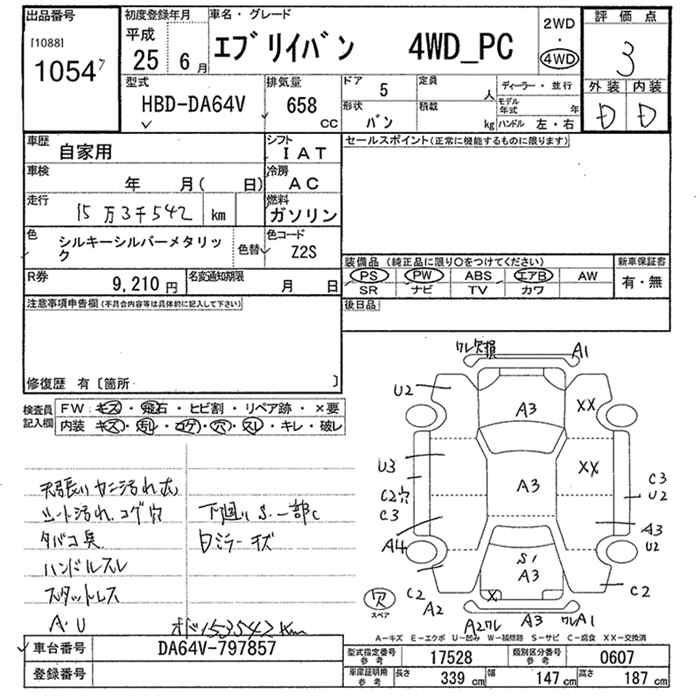 出品番号
[1088]
1054
初度登録年月
平成
25 6月
車名・グレード
エブリイバン 4WD_PC
2WD
・
4WD
評価点
3
外装 内装
D D
型式
HBD-DA64V
排気量
658
cc
ドア 5
定員
人
ディーラー・並行
モデル年式 年
形状 バン
積載
kg
ハンドル 左・右
車歴
自家用
シフト
IAT
セールスポイント(正常に機能するものに限ります)
車検
年 月( 日)
冷房
AC
走行
15万3千542 km
燃料
ガソリン
色
シルキーシルバーメタリック
色替
色コード
Z2S
装備品 (純正品に限り○をつけてください)
新車保証書
PS PW ABS エアB AW
SR ナビ TV カワ
有・無
R券
9,210円
名変通知期限
月 日
後日品
注意事項申告欄(不具合内容等は具体的に記入して下さい)
修復歴 有〔箇所 〕
検査員記入欄
FW: キズ・飛石・ヒビ割・リペア跡・×要
内装: キズ・汚レ・コゲ・穴・スレ・キレ・破レ
天張り ヤニ汚れ大
シート汚れ、コゲ穴
タバコ臭
ハンドルスレ
スタットレス
A・U
下廻り S、一部C
ロミラーキズ
オド153542Km
ワレ欠損
A1
U2
A3
XX
U3
C2穴
C3
A3
XX
C3
U2
A4
A3
U2
S1
A3
C2
A2
X
C2
穴
スペア
A2ワレ
A3
ワレA1
A-キズ E-エクボ U-凹み W-補修跡 S-サビ C-腐食 XX-交換済
車台番号
DA64V-797857
登録番号
型式指定番号
参考
17528
類別区分番号
参考
0607
車庫証明用
参考
長さ 339 cm 幅 147 cm 高さ 187 cm